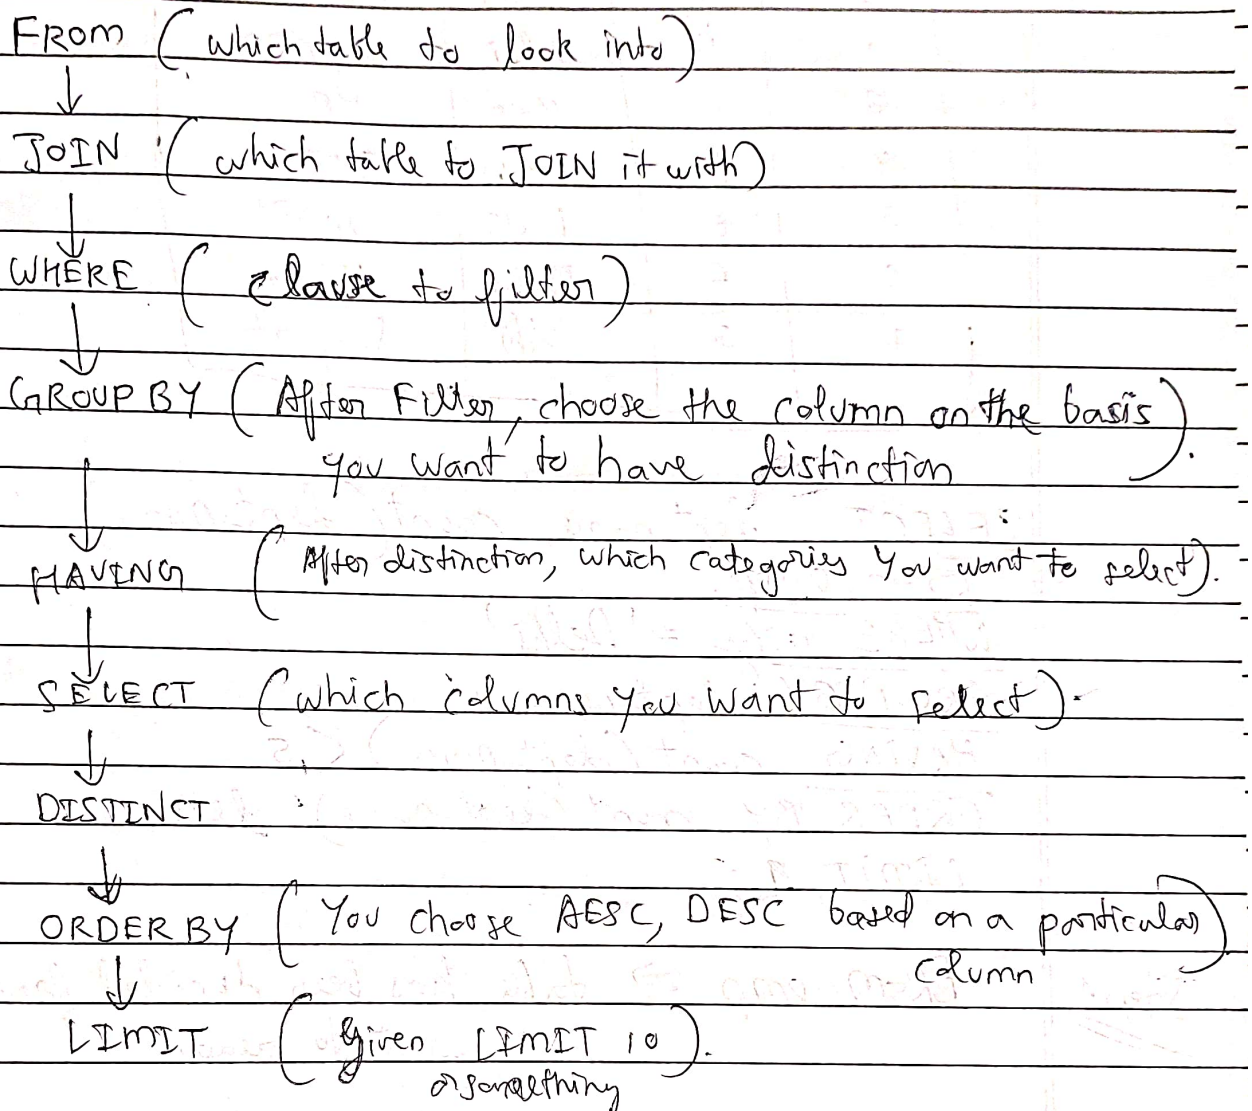 FROM (which table to look into)
JOIN (which table to JOIN it with)
WHERE ( clause to filter)
GROUP BY (After Filter, choose the column on the basis
you want to have distinction).
HAVING (After distinction, which categories You want to select).
SELECT (which columns you want to select).
DISTINCT
ORDER BY (You choose AESC, DESC based on a particular
column)
LIMIT (Given LIMIT 10
or something).